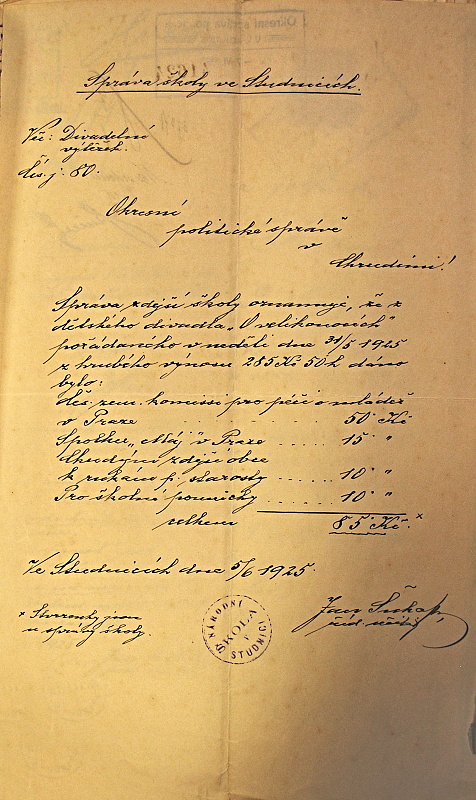 Správa školy ve Studnicích.
Věc: Divadelní
výtěžek.
čís. j. 80.
Okresní
politické správě
v
Chrudimi!
Správa zdejší školy oznamuje, že z
dětského divadla „O velikonocích"
pořádaného v neděli dne 31/5 1925
z hrubého výnosu 285 Kč 50 h dáno
bylo:
čes. zem. komissi pro péči o mládež
v Praze . . . . . . 50 Kč
Spolku „Máj" v Praze . . . . . 15 "
Chudým zdejší obce
k rukám p. starosty . . . . . 10 "
Pro školní pomůcky . . . . . . 10 "
celkem 85 Kč. x
Ve Studnicích dne 5/6 1925.
x Stvrzenky jsou
u správy školy.
Jan
říd. učitel
NÁRODNÍ
ŠKOLA
V
STUDNICI